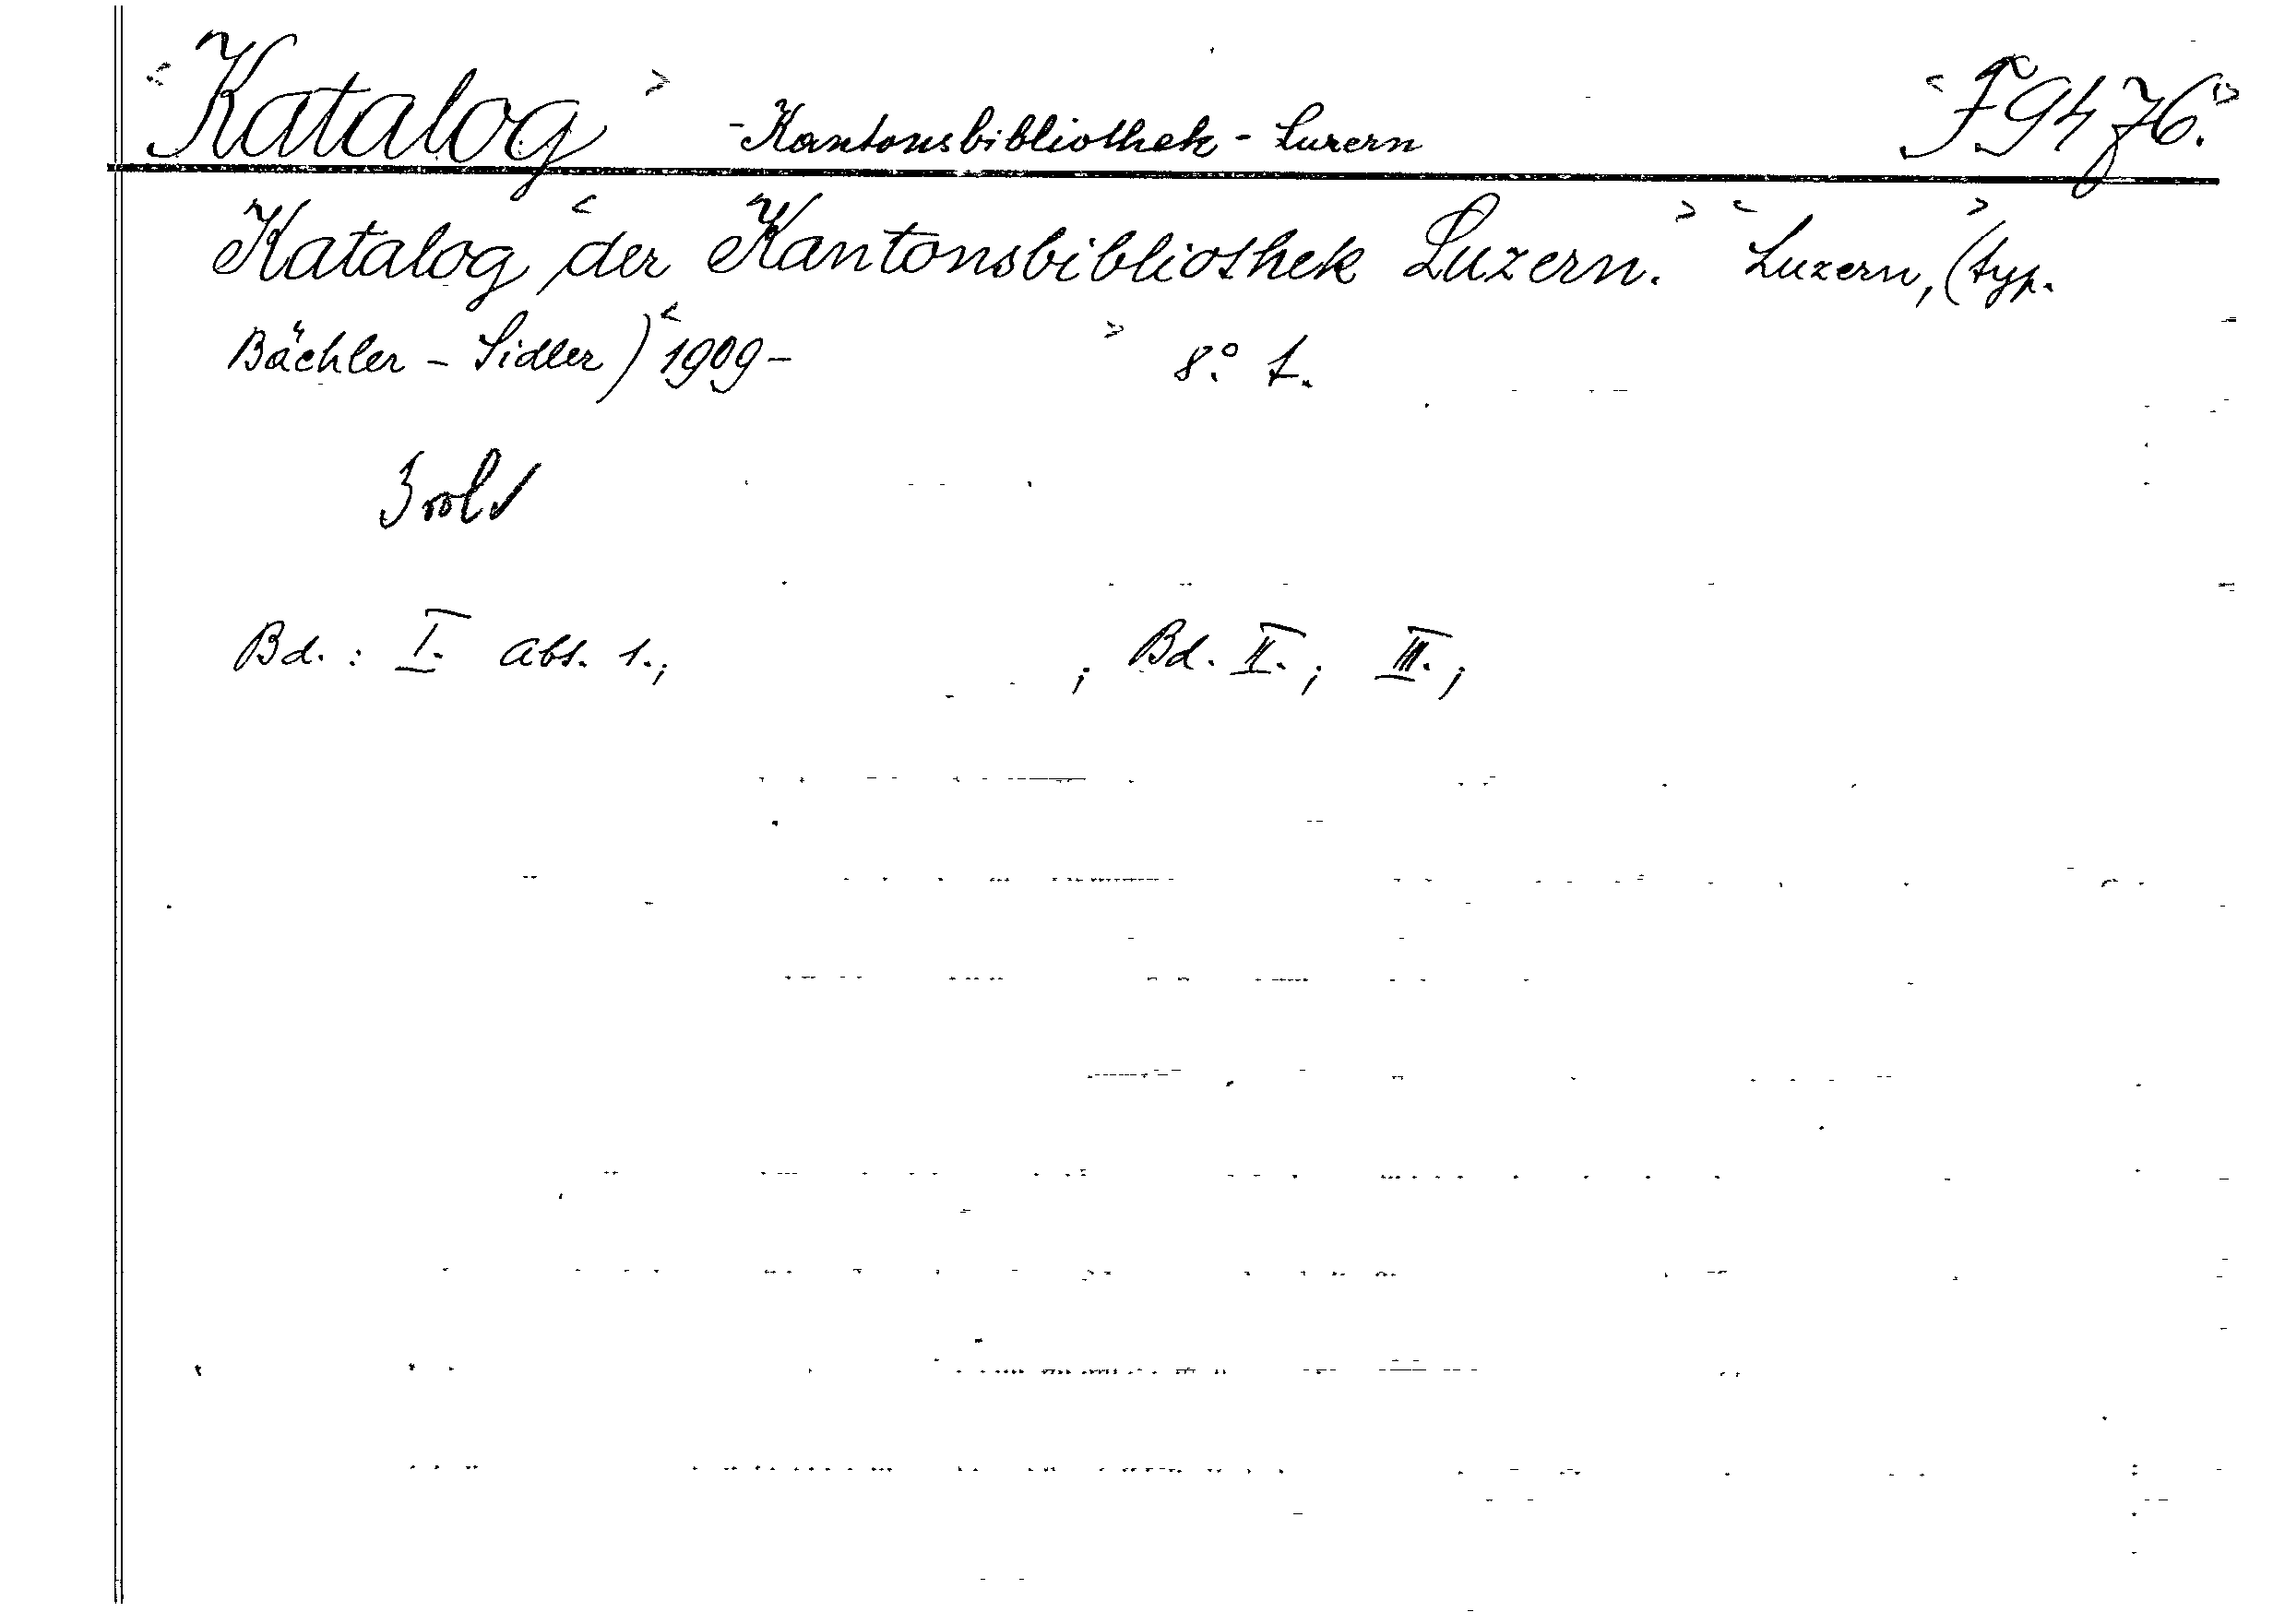 <Katalog> -Kantonsbibliothek - Luzern <F 9476.>
Katalog <der Kantonsbibliothek Luzern.> <Luzern,> (typ.
Bächler - Sidler) <1909- > 8° t.
3 vols
Bd. : I. Abt. 1., ; Bd. II. ; III. ;